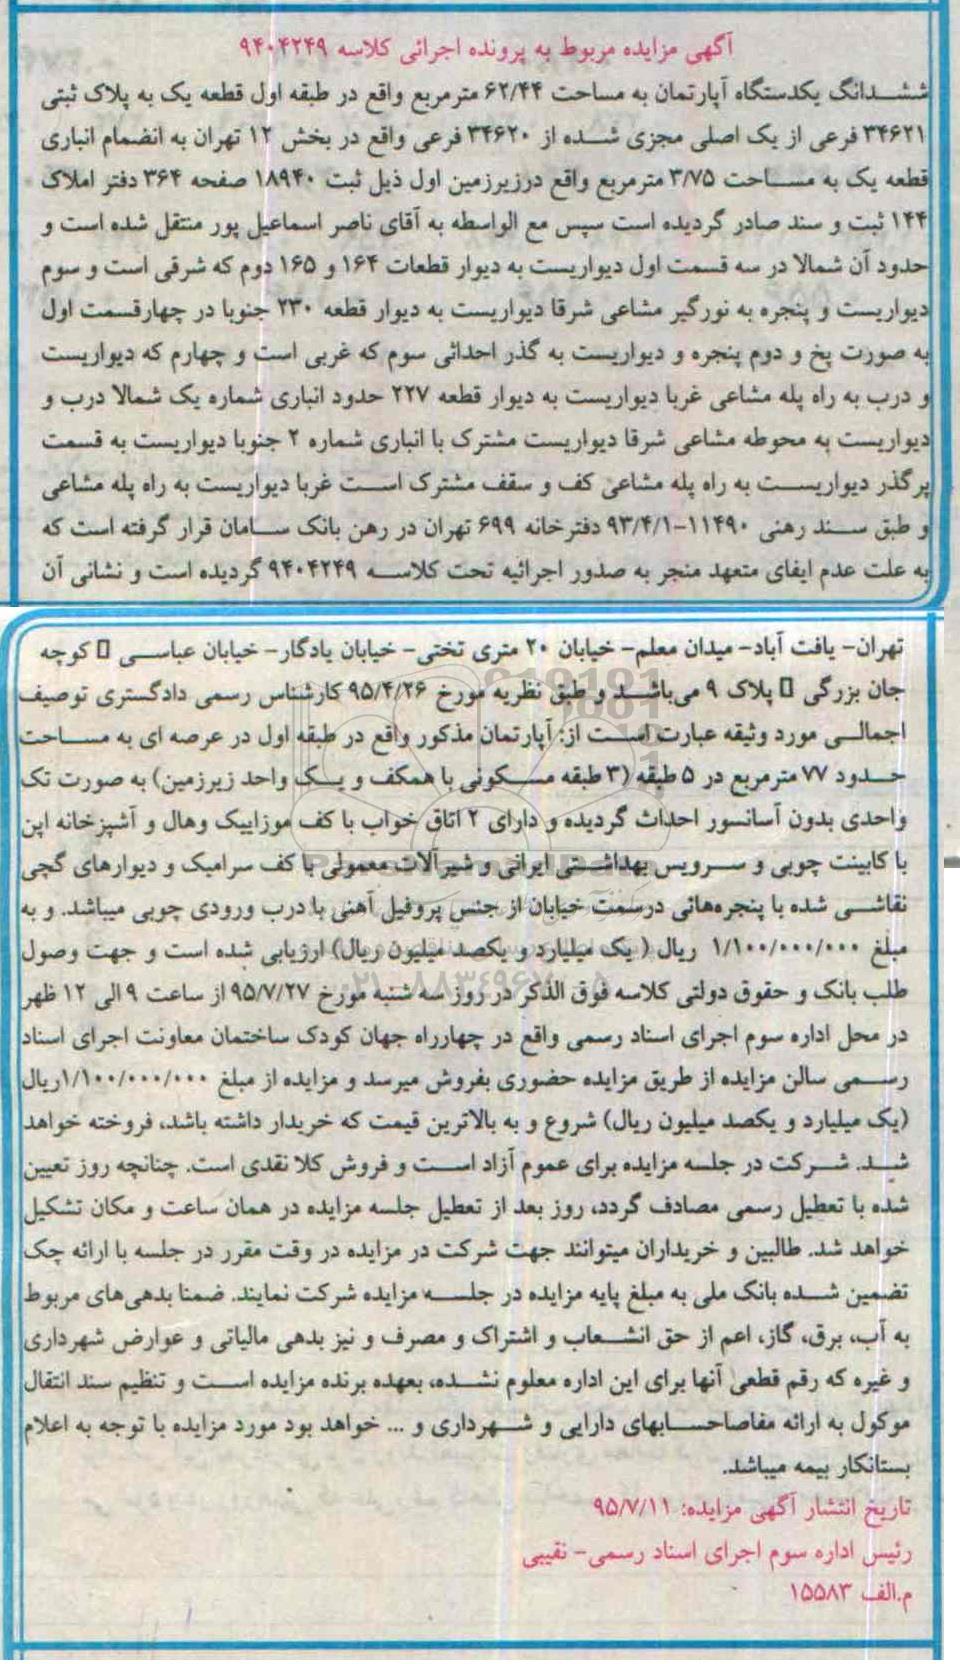 آگهی مزایده مربوط به پرونده اجرائی کلاسه ۹۴۰۴۲۴۹
ششدانگ یکدستگاه آپارتمان به مساحت ۶۲/۴۴ مترمربع واقع در طبقه اول قطعه یک به پلاک ثبتی
۳۴۶۲۱ فرعی از یک اصلی مجزی شده از ۳۴۶۲۰ فرعی واقع در بخش ۱۲ تهران به انضمام انباری
قطعه یک به مساحت ۳/۷۵ مترمربع واقع درزیرزمین اول ذیل ثبت ۱۸۹۴۰ صفحه ۳۶۴ دفتر املاک
۱۴۴ ثبت و سند صادر گردیده است سپس مع الواسطه به آقای ناصر اسماعیل پور منتقل شده است و
حدود آن شمالا در سه قسمت اول دیواریست به دیوار قطعات ۱۶۴ و ۱۶۵ دوم که شرقی است و سوم
دیواریست و پنجره به نورگیر مشاعی شرقا دیواریست به دیوار قطعه ۲۳۰ جنوبا در چهارقسمت اول
به صورت پخ و دوم پنجره و دیواریست به گذر احداثی سوم که غربی است و چهارم که دیواریست
و درب به راه پله مشاعی غربا دیواریست به دیوار قطعه ۲۲۷ حدود انباری شماره یک شمالا درب و
دیواریست به محوطه مشاعی شرقا دیواریست مشترک با انباری شماره ۲ جنوبا دیواریست به قسمت
پرگذر دیواریست به راه پله مشاعی کف و سقف مشترک است غربا دیواریست به راه پله مشاعی
و طبق سند رهنی ۱۱۴۹۰-۹۳/۴/۱ دفترخانه ۶۹۹ تهران در رهن بانک سامان قرار گرفته است که
به علت عدم ایفای متعهد منجر به صدور اجرائیه تحت کلاسه ۹۴۰۴۲۴۹ گردیده است و نشانی آن
تهران- یافت آباد- میدان معلم- خیابان ۲۰ متری تختی- خیابان یادگار- خیابان عباسی کوچه
جان بزرگی پلاک ۹ می‌باشد و طبق نظریه مورخ ۹۵/۴/۲۶ کارشناس رسمی دادگستری توصیف
اجمالی مورد وثیقه عبارت است از: آپارتمان مذکور واقع در طبقه اول در عرصه ای به مساحت
حدود ۷۷ مترمربع در ۵ طبقه (۳ طبقه مسکونی با همکف و یک واحد زیرزمین) به صورت تک
واحدی بدون آسانسور احداث گردیده و دارای ۲ اتاق خواب با کف موزاییک وهال و آشپزخانه اپن
با کابینت چوبی و سرویس بهداشتی ایرانی و شیرآلات معمولی با کف سرامیک و دیوارهای گچی
نقاشی شده با پنجره‌هائی درسمت خیابان از جنس پروفیل آهنی با درب ورودی چوبی میباشد. و به
مبلغ ۱/۱۰۰/۰۰۰/۰۰۰ ریال ( یک میلیارد و یکصد میلیون ریال) ارزیابی شده است و جهت وصول
طلب بانک و حقوق دولتی کلاسه فوق الذکر در روز سه شنبه مورخ ۹۵/۷/۲۷ از ساعت ۹ الی ۱۲ ظهر
در محل اداره سوم اجرای اسناد رسمی واقع در چهارراه جهان کودک ساختمان معاونت اجرای اسناد
رسمی سالن مزایده از طریق مزایده حضوری بفروش میرسد و مزایده از مبلغ ۱/۱۰۰/۰۰۰/۰۰۰ریال
(یک میلیارد و یکصد میلیون ریال) شروع و به بالاترین قیمت که خریدار داشته باشد، فروخته خواهد
شد. شرکت در جلسه مزایده برای عموم آزاد است و فروش کلا نقدی است. چنانچه روز تعیین
شده با تعطیل رسمی مصادف گردد، روز بعد از تعطیل جلسه مزایده در همان ساعت و مکان تشکیل
خواهد شد. طالبین و خریداران میتوانند جهت شرکت در مزایده در وقت مقرر در جلسه با ارائه چک
تضمین شده بانک ملی به مبلغ پایه مزایده در جلسه مزایده شرکت نمایند. ضمنا بدهی‌های مربوط
به آب، برق، گاز، اعم از حق انشعاب و اشتراک و مصرف و نیز بدهی مالیاتی و عوارض شهرداری
و غیره که رقم قطعی آنها برای این اداره معلوم نشده، بعهده برنده مزایده است و تنظیم سند انتقال
موکول به ارائه مفاصاحسابهای دارایی و شهرداری و ... خواهد بود مورد مزایده با توجه به اعلام
بستانکار بیمه میباشد.
تاریخ انتشار آگهی مزایده: ۹۵/۷/۱۱
رئیس اداره سوم اجرای اسناد رسمی- نقیبی
م.الف ۱۵۵۸۳